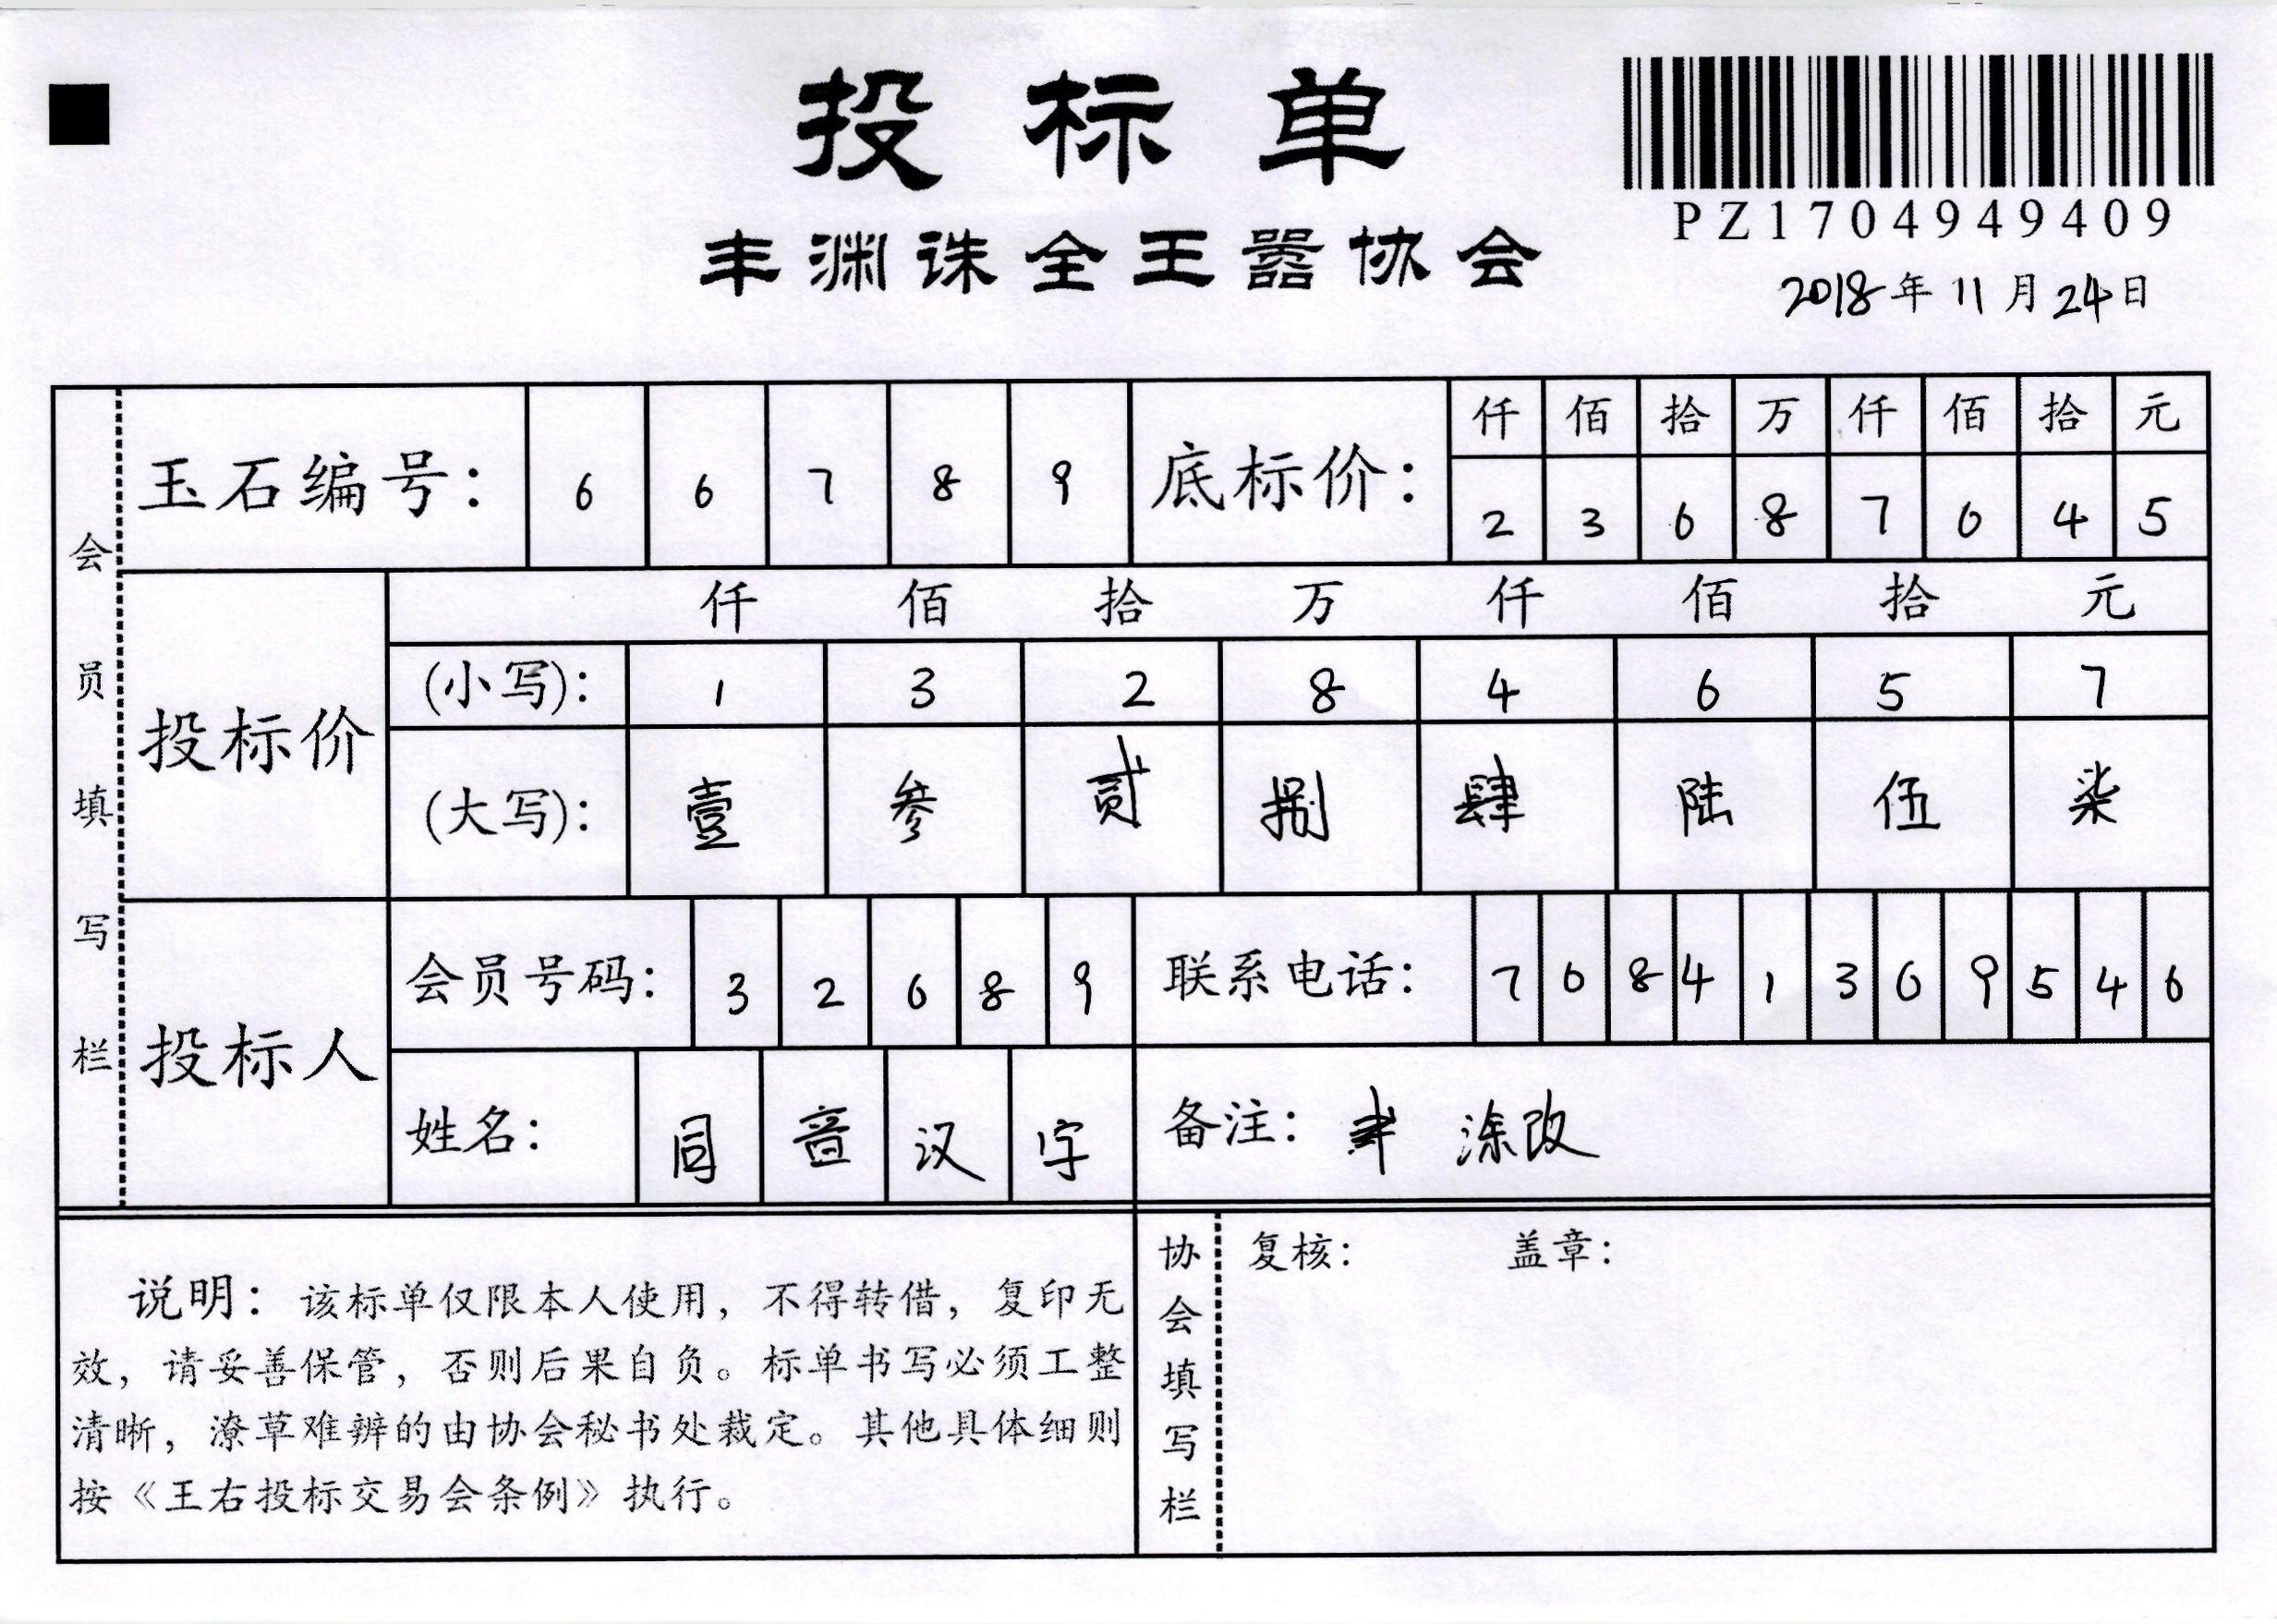 投标单
丰渊诛全王嚣协会
PZ1704949409
2018年11月24日
会员填写栏
玉石编号: 6 6 7 8 9
底标价: 仟 佰 拾 万 仟 佰 拾 元
2 3 6 8 7 6 4 5
投标价
仟 佰 拾 万 仟 佰 拾 元
(小写): 1 3 2 8 4 6 5 7
(大写): 壹 参 贰 捌 肆 陆 伍 柒
投标人
会员号码: 3 2 6 8 9
联系电话: 7 6 8 4 1 3 6 9 5 4 6
姓名: 同 音 汉 字
备注: 涂改
说明: 该标单仅限本人使用, 不得转借, 复印无
效, 请妥善保管, 否则后果自负。标单书写必须工整
清晰, 潦草难辨的由协会秘书处裁定。其他具体细则
按《王右投标交易会条例》执行。
协会填写栏
复核: 盖章: